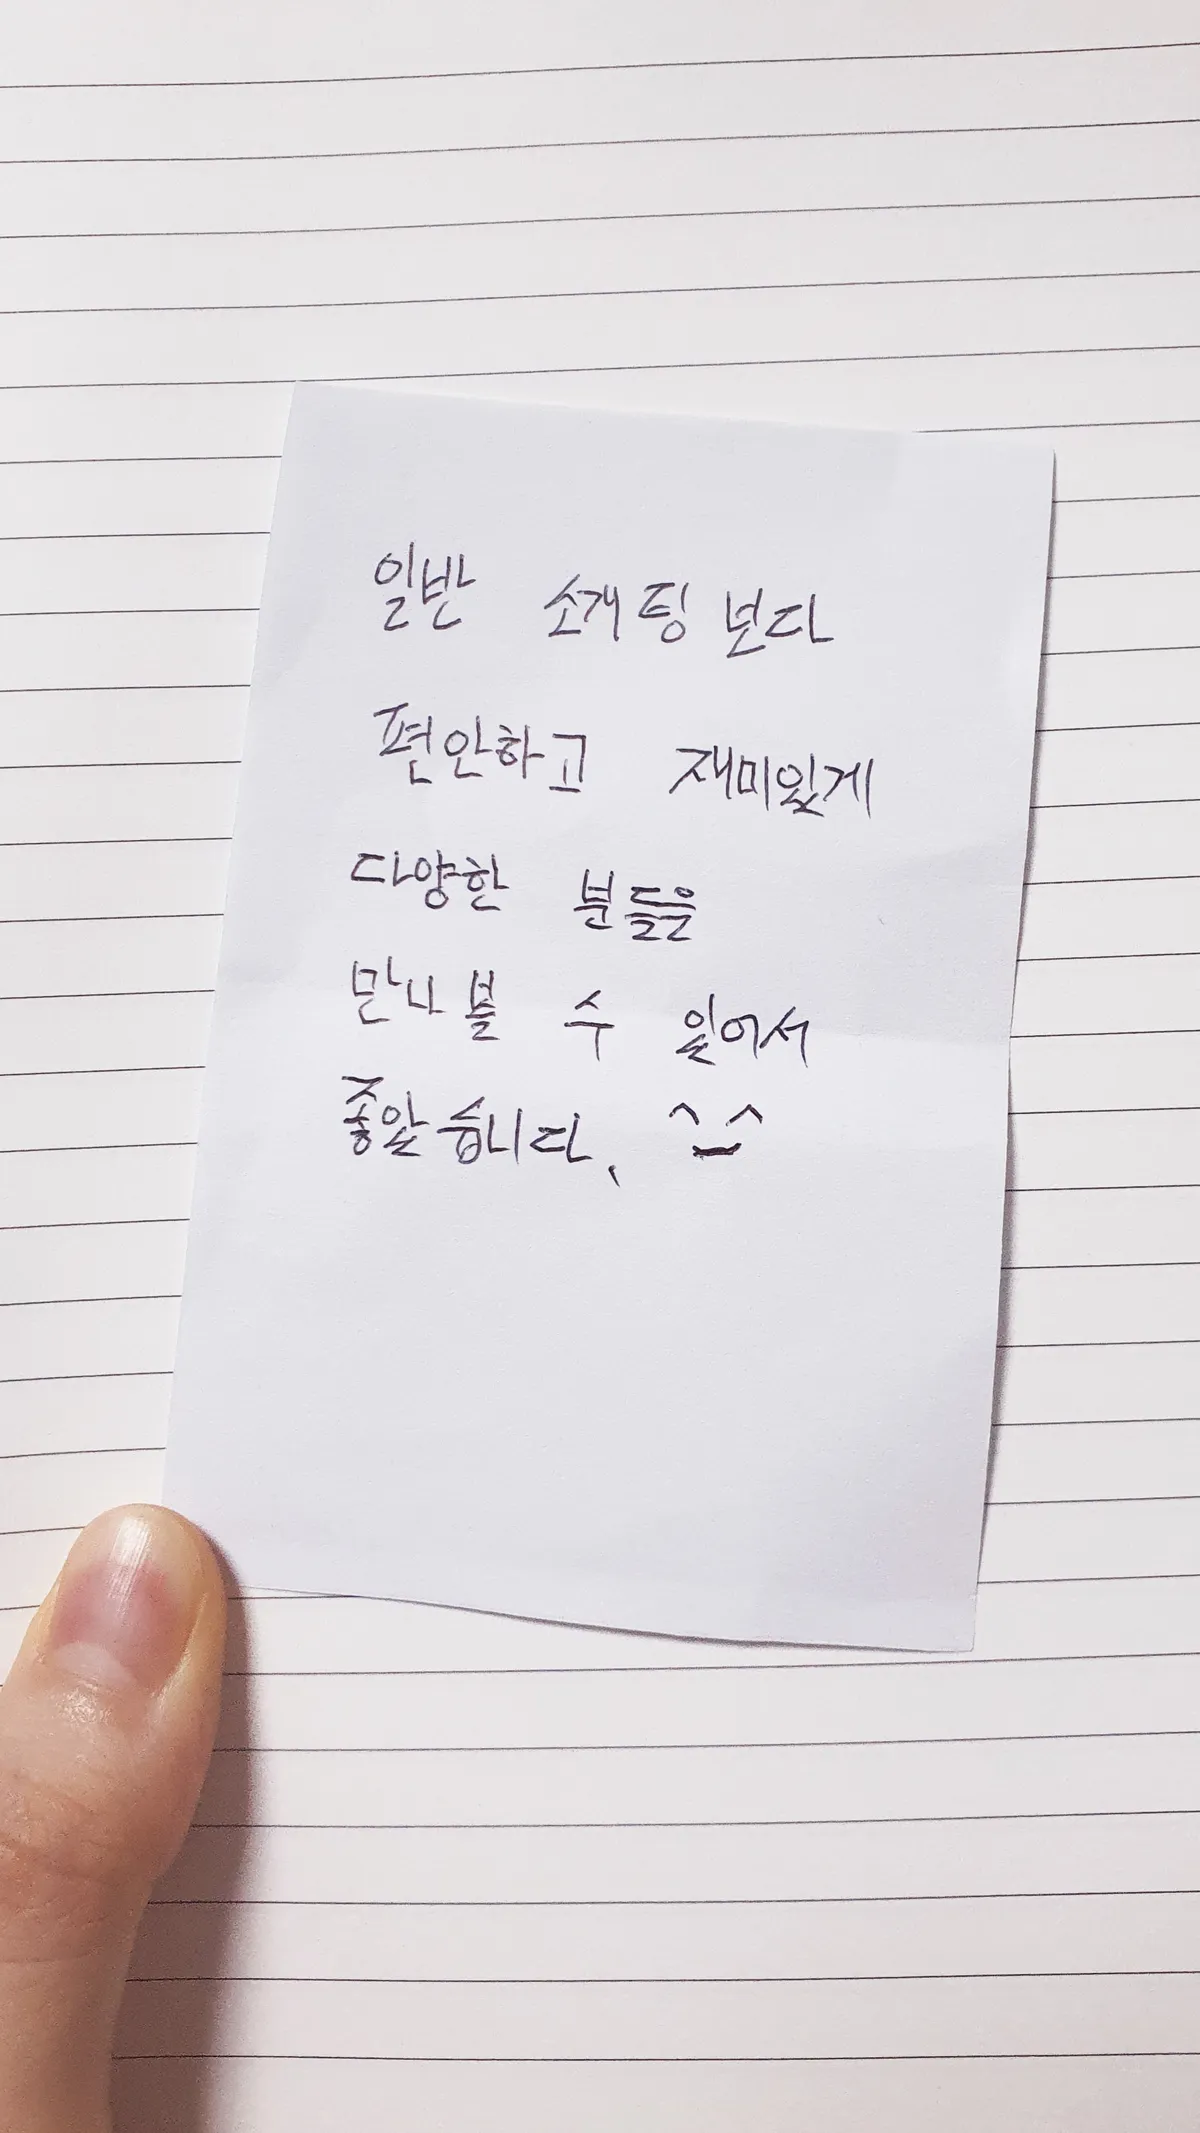 일반 소개팅 보다
편안하고 재미있게
다양한 분들을
만나 볼 수 있어서
좋았습니다. ^_^